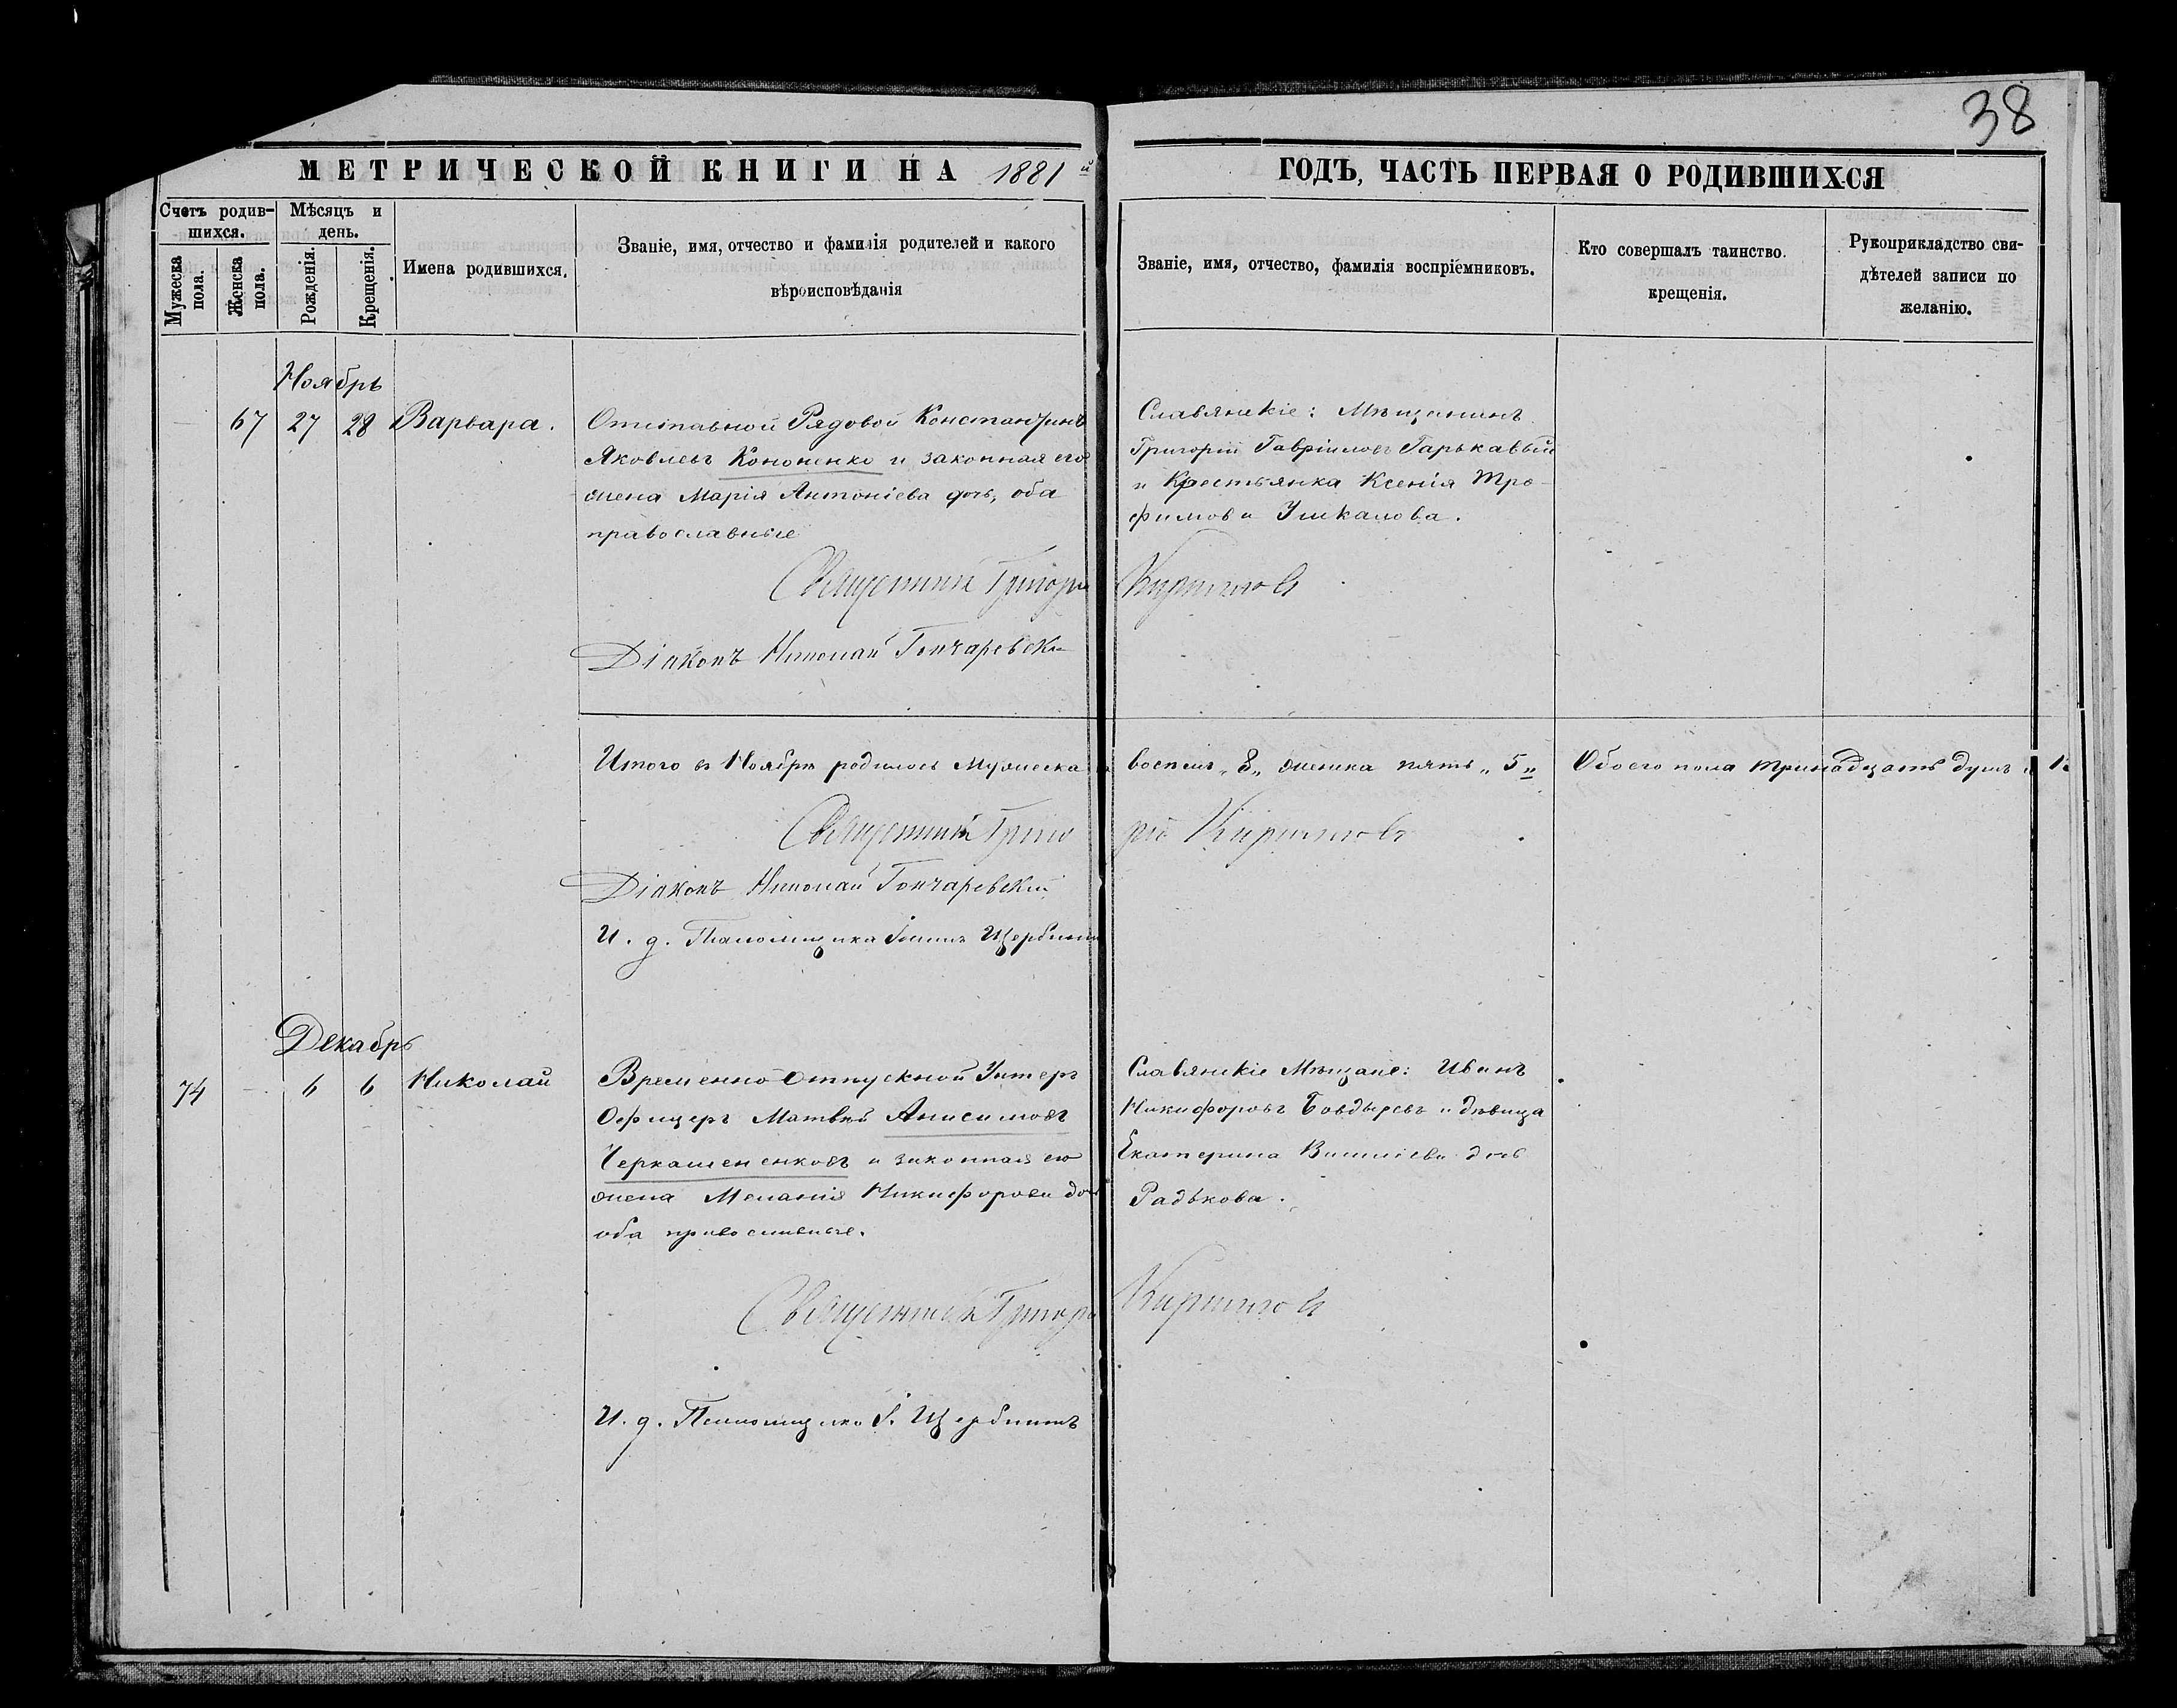 38
МЕТРИЧЕСКОЙ КНИГИ НА 1881й
ГОДЪ, ЧАСТЬ ПЕРВАЯ О РОДИВШИХСЯ
Счетъ родив-
шихся.
Мѣсяцъ и
день.
Мужеска
пола.
Женска
пола.
Рожденія.
Крещенія.
Имена родившихся.
Званіе, имя, отчество и фамилія родителей и какого
вѣроисповѣданія
Званіе, имя, отчество, фамилія воспріемниковъ.
Кто совершалъ таинство
крещенія.
Рукоприкладство сви-
дѣтелей записи по
желанію.
Ноябрь
67 27 28 Варвара.
Отставной Рядовой Константинъ
Яковлевъ Кононенко и законная его
жена Марія Антоніева дочь, оба
православные
Славянскіе: Мѣщанинъ
Григорій Гавріиловъ Гарькавый
и Крестьянка Ксенія Тро-
фимова Ушкалова.
Священникъ Григорій Кирилловъ
Діаконъ Николай Гончаревскій
Итого въ Ноябрѣ родилось Мужеска восемь „8„ женска пять „5„ Обоего пола тринадцать душъ
Священникъ Григорій Кирилловъ
Діаконъ Николай Гончаревскій
И. д. Псаломщика Щербина
Декабрь
74 - 6 6 Николай
Временно-отпускной Унтеръ
Офицеръ Матвѣй Анисимовъ
Черкашененковъ и законная его
жена Меланія Никифорова дочь
оба православные.
Славянскіе Мѣщане: Иванъ
Никифоровъ Бовдыревъ и дѣвица
Екатерина Василіева дочь
Радькова.
Священникъ Григорій Кирилловъ
И. д. Псаломщика І. Щербина